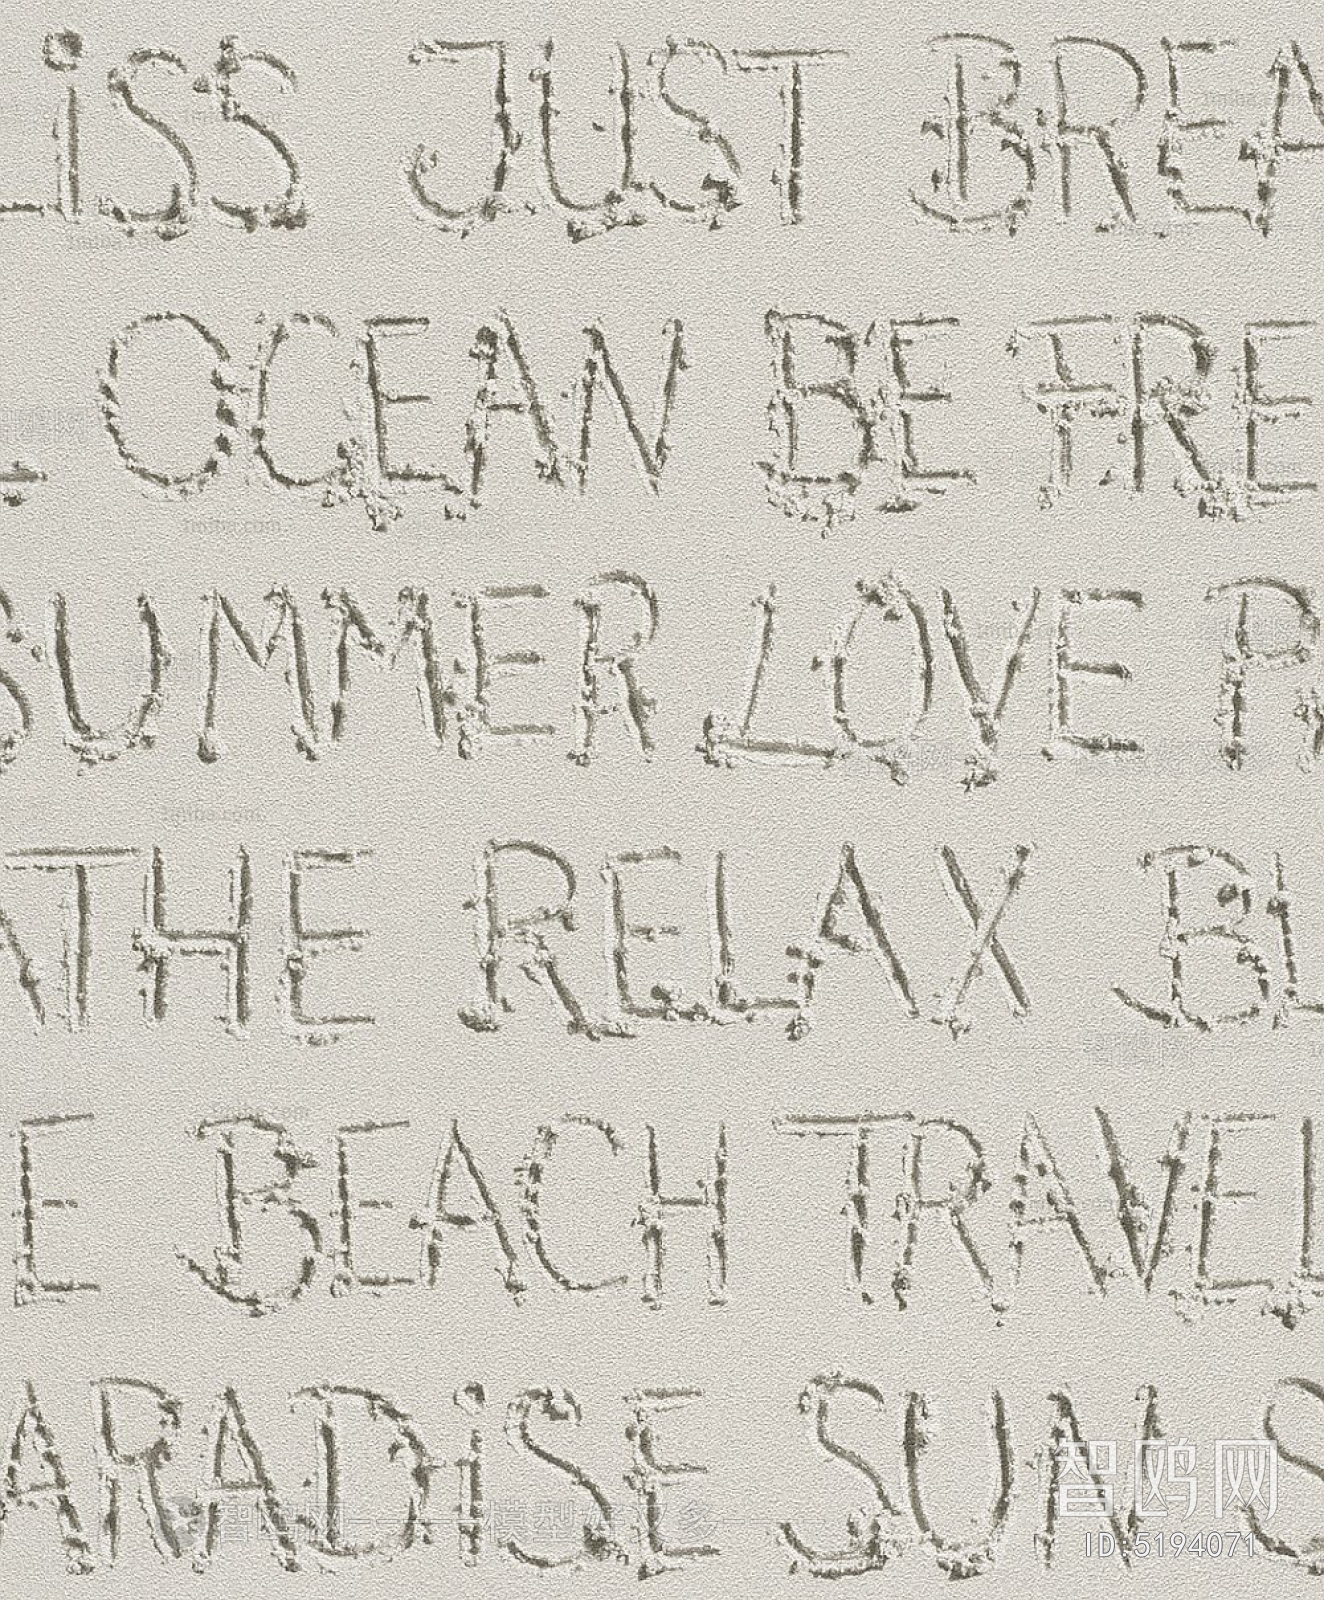 LiSS JUST BREA
L OCEAN BE FREE
SUMMER LOVE PA
ATHE RELAX BL
E BEACH TRAVEL
ARADiSE SUN S
智鸥网
ID:5194071